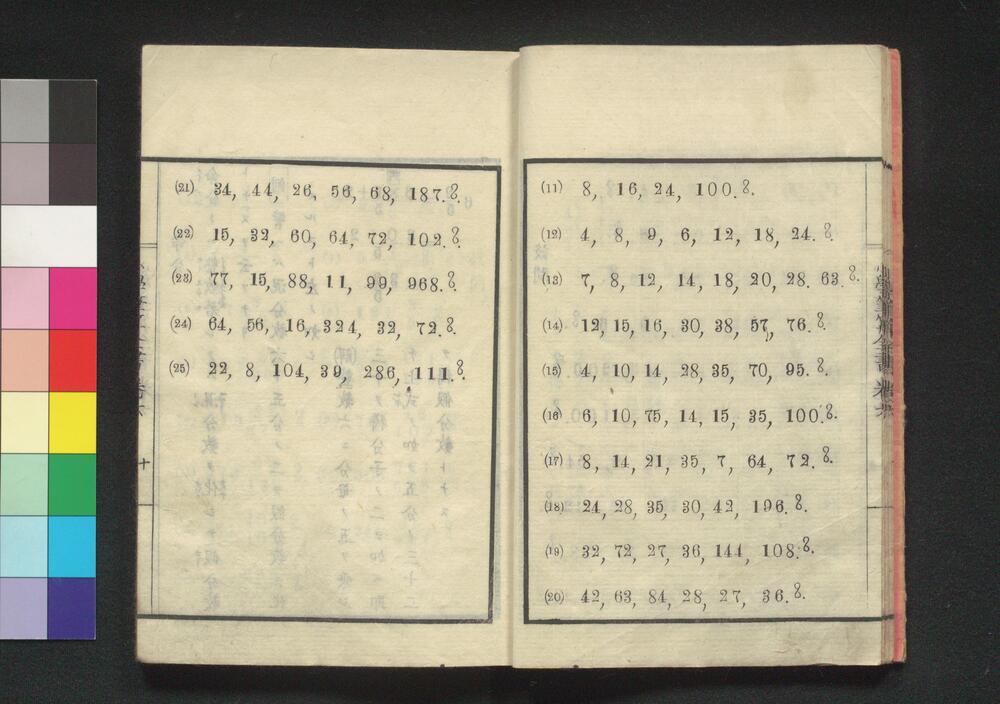 (11) 8, 16, 24, 100.
(12) 4, 8, 9, 6, 12, 18, 24.
(13) 7, 8, 12, 14, 18, 20, 28. 63.
(14) 12, 15, 16, 30, 38, 57, 76.
(15) 4, 10, 14, 28, 35, 70, 95.
(16) 6, 10, 75, 14, 15, 35, 100.
(17) 8, 14, 21, 35, 7, 64, 72.
(18) 24, 28, 35, 30, 42, 196.
(19) 32, 72, 27, 36, 144, 108.
(20) 42, 63, 84, 28, 27, 36.
(21) 34, 44, 26, 56, 68, 187.
(22) 15, 32, 60, 64, 72, 102.
(23) 77, 15, 88, 11, 99, 968.
(24) 64, 56, 16, 324, 32, 72.
(25) 22, 8, 104, 39, 286, 111.
十